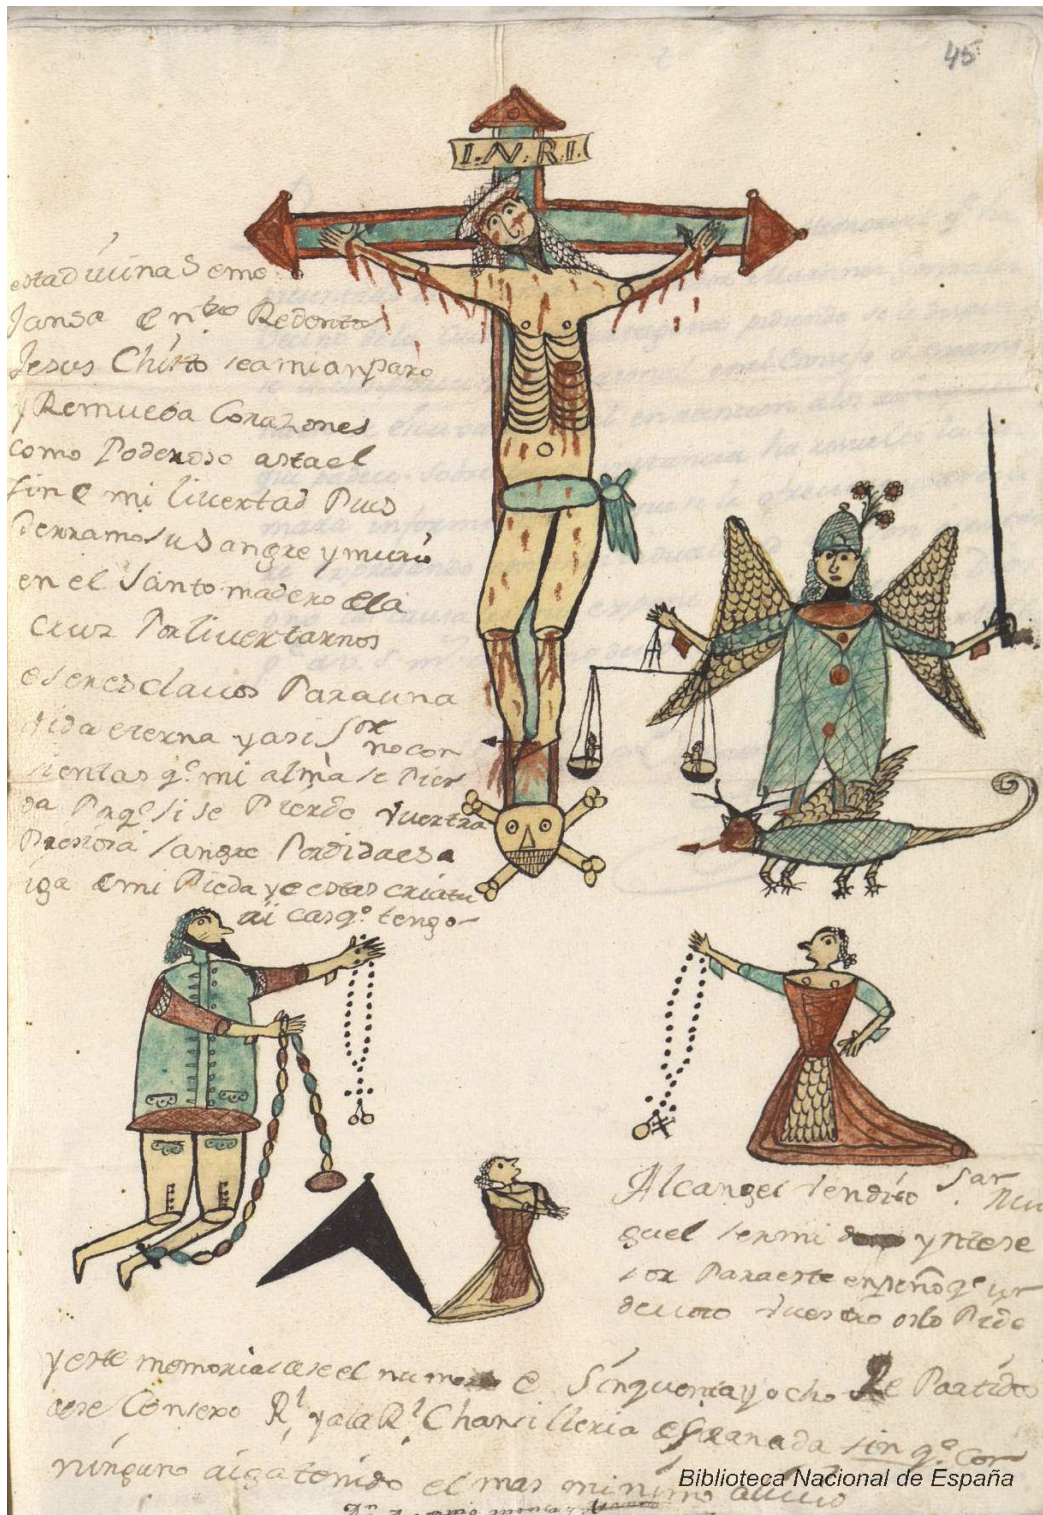 45
I.N.R.I.
esta diuina Seme
Jansa e nᵗʳᵒ Redento
Jesus Chirto sea mi anparo
y Remueba Corazones
como Poderoso asta el
fin e mi liuertad Pues
derramo su Sangre y murio
en el Santo madero e la
Cruz Por liuertarnos
e ser esclauos Para una
uida eterna y asi Sᵒʳ
no con
sientas qᵉ mi alma se Pier
da Porqᵉ si se Pierde vuestra
Presiosa sangre Perdida es a
iga e mi Pieda y e estas criatu
ai cas qᵉ tengo
Alcangel vendito San
Mi
guel ser mi y ntese
sor Para este enpeño qᵉ un
deuoto vuestro os lo Pide
y este memorial ase el numero e Sinquenta y ocho Re Partido
a ese Consexo Rˡ y a la Rˡ Chansilleria e Granada sin qᵉ con
ninguno aiga tenido el mas minimo aliuio
Biblioteca Nacional de España